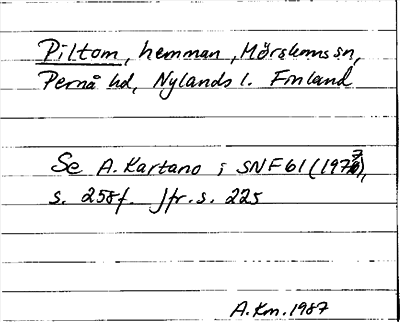 Piltom, hemman, Mörskoms sn,
Pernå hd, Nylands l. Finland
Se A. Kartano i SNF 61 (1973),
s. 258f. Jfr. s. 225
A.Km. 1987